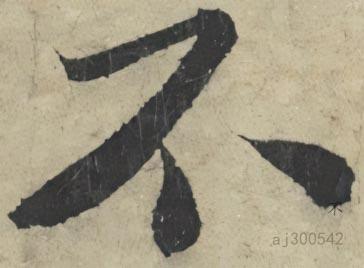 不
木
aj300542